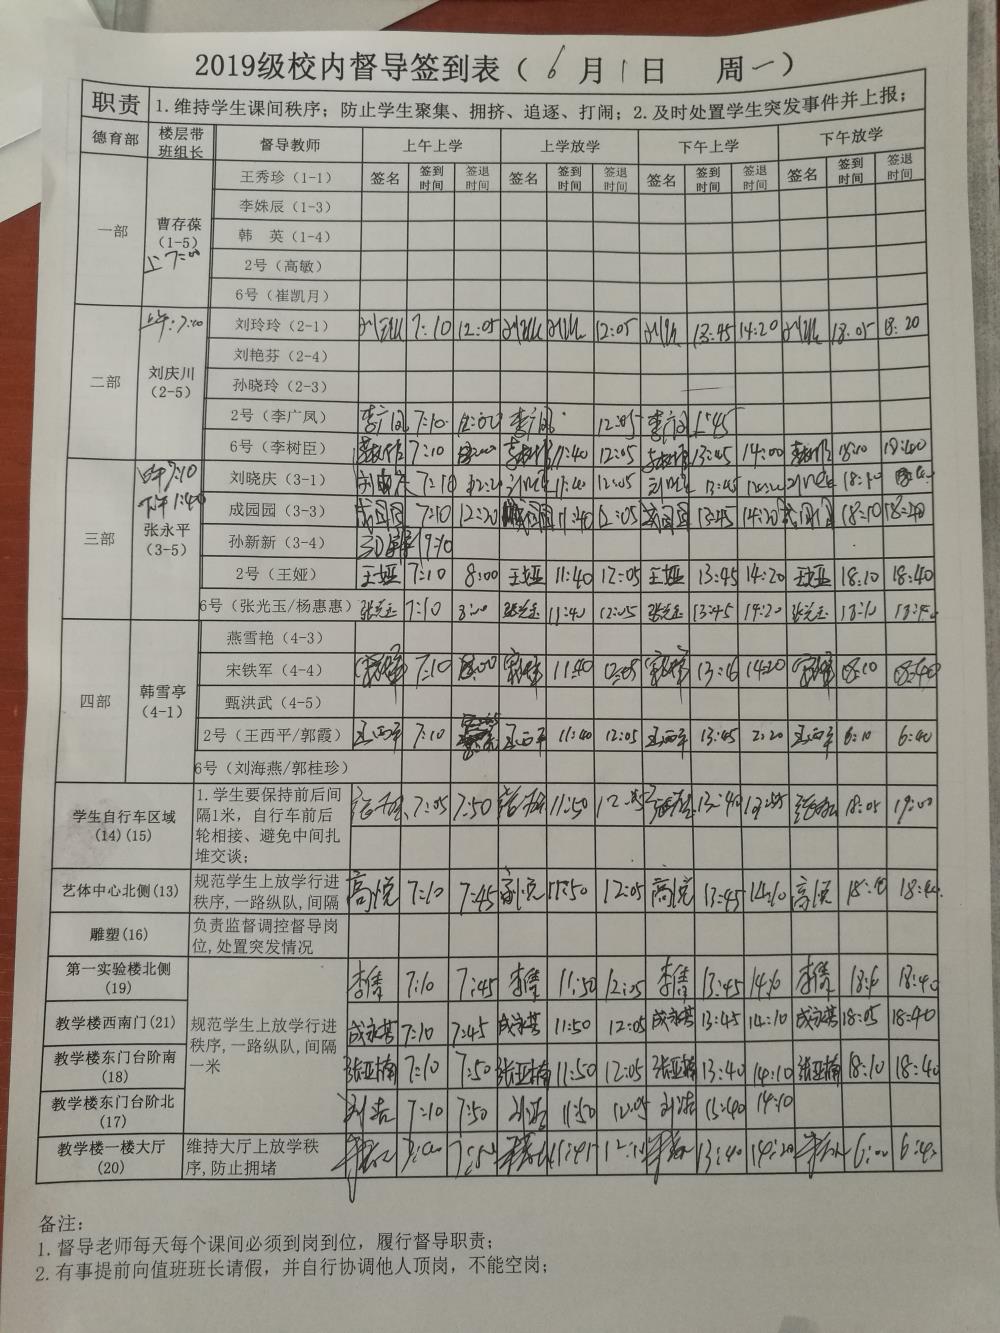 2019级校内督导签到表（6月1日 周一）
职责 1.维持学生课间秩序；防止学生聚集、拥挤、追逐、打闹；2.及时处置学生突发事件并上报；
德育部 楼层带班组长 督导教师 上午上学 上学放学 下午上学 下午放学
签名 签到时间 签退时间 签名 签到时间 签退时间 签名 签到时间 签退时间 签名 签到时间 签退时间
一部 曹存葆（1-5） 上7:00
王秀珍（1-1）
李姝辰（1-3）
韩 英（1-4）
2号（高敏）
6号（崔凯月）
二部 刘庆川（2-5）
刘玲玲（2-1） 7:10 12:05 12:05 13:45 14:20 18:05 18:20
刘艳芬（2-4）
孙晓玲（2-3）
2号（李广凤） 李广凤 7:10 12:00 李广凤 12:05 李广凤
6号（李树臣） 7:10 11:40 12:05 13:45 14:00 18:10 18:40
三部 7:10 下午1:40 张永平（3-5）
刘晓庆（3-1） 7:10 12:20 11:40 12:05 13:45 18:10
成园园（3-3） 成园园 7:10 12:20 11:40 12:05 成园园 13:45 14:20 成园园 18:10 18:40
孙新新（3-4）
2号（王娅） 王娅 7:10 8:00 王娅 11:40 12:05 王娅 13:45 14:20 王娅 18:10 18:40
6号（张光玉/杨惠惠） 张光玉 7:10 8:00 张光玉 11:40 12:05 张光玉 13:45 14:20 张光玉 18:10 18:40
四部 韩雪亭（4-1）
燕雪艳（4-3）
宋铁军（4-4） 7:10 8:00 11:40 12:05 13:16 14:20 18:10 18:40
甄洪武（4-5）
2号（王西平/郭霞） 王西平 7:10 王西平 11:40 12:05 王西平 13:45 2:20 王西平 6:10 6:40
6号（刘海燕/郭桂珍）
学生自行车区域(14)(15) 1.学生要保持前后间隔1米，自行车前后轮相接、避免中间扎堆交谈； 7:05 7:50 11:50 13:40 18:05 19:00
艺体中心北侧(13) 规范学生上放学行进秩序,一路纵队,间隔 高悦 7:10 7:45 高悦 11:50 12:05 高悦 13:45 14:10 高悦 18:10 18:40
雕塑(16) 负责监督调控督导岗位,处置突发情况
第一实验楼北侧(19) 李倩 7:10 7:45 李倩 11:50 12:05 李倩 13:45 14:10 李倩 18:40
教学楼西南门(21) 规范学生上放学行进秩序,一路纵队,间隔一米 7:10 7:45 11:50 12:05 13:45 14:10 18:05 18:40
教学楼东门台阶南(18) 张亚楠 7:10 7:50 张亚楠 11:50 12:05 张亚楠 13:40 14:10 张亚楠 18:10 18:40
教学楼东门台阶北(17) 刘洁 7:10 7:50 刘洁 11:50 12:05 刘洁 13:40 14:10
教学楼一楼大厅(20) 维持大厅上放学秩序,防止拥堵 7:00 7:50 11:45 13:40 14:20 6:00 6:40
备注：
1.督导老师每天每个课间必须到岗到位，履行督导职责；
2.有事提前向值班班长请假，并自行协调他人顶岗，不能空岗；